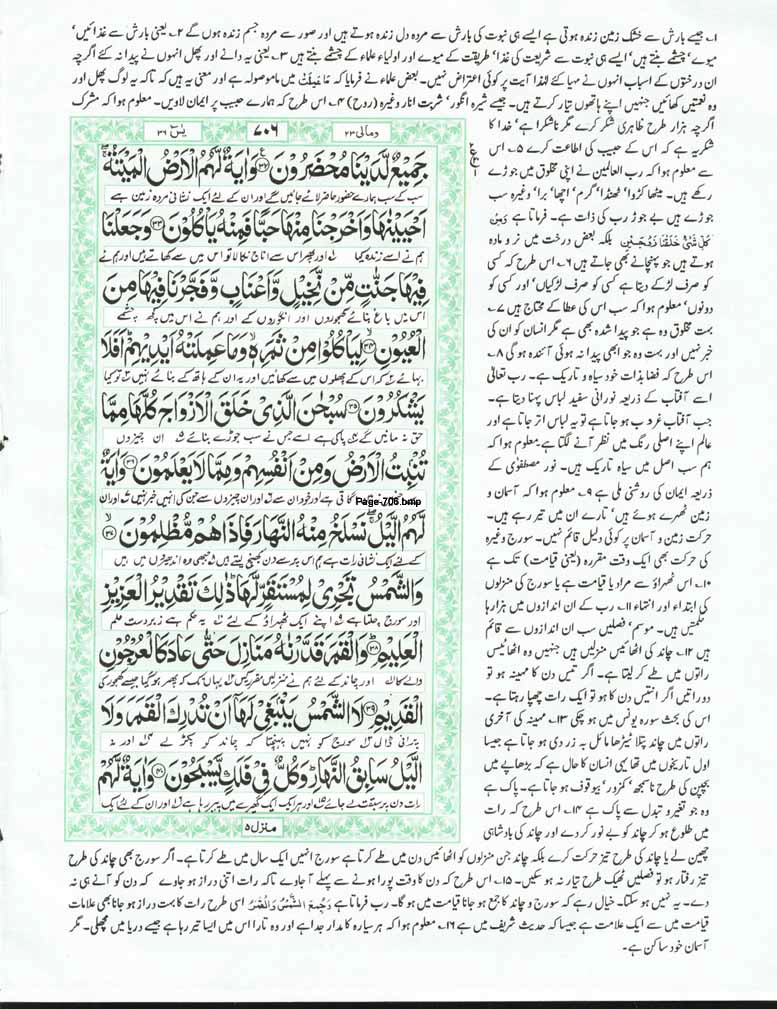 ۱۔ جیسے بارش سے خشک زمین زندہ ہوتی ہے ایسے ہی نبوت کی بارش سے مردہ دل زندہ ہوتے ہیں اور صور سے مردہ جسم زندہ ہوں گے ۲۔ یعنی بارش سے غذائیں'
میوے' چشمے بنتے ہیں' ایسے ہی نبوت سے شریعت کی غذا' طریقت کے میوے اور اولیاء علماء کے چشمے بنتے ہیں ۳۔ یعنی یہ دانے اور پھل انہوں نے پیدا نہ کئے اگرچہ
ان درختوں کے اسباب انہوں نے مہیا کئے لہٰذا آیت پر کوئی اعتراض نہیں۔ بعض علماء نے فرمایا کہ مَا عَمِلَتْ میں ما موصولہ ہے اور معنی یہ ہیں کہ تاکہ یہ لوگ پھل اور
وہ نعمتیں کھائیں جنہیں اپنے ہاتھوں تیار کرتے ہیں۔ جیسے شیرہ انگور' شربت انار وغیرہ (روح) ۴۔ اس طرح کہ ہمارے حبیب پر ایمان لاویں۔ معلوم ہوا کہ مشرک
اگرچہ ہزار طرح ظاہری شکر کرے مگر ناشکرا ہے' خدا کا
شکریہ ہے کہ اس کے حبیب کی اطاعت کرے ۵۔ اس
سے معلوم ہوا کہ رب العالمین نے اپنی مخلوق میں جوڑے
رکھے ہیں۔ میٹھا کڑوا' ٹھنڈا' گرم' اچھا' برا' وغیرہ سب
جوڑے ہیں بے جوڑ رب کی ذات ہے۔ فرماتا ہے وَمِنْ
كُلِّ شَیْءٍ خَلَقْنَا زَوْجَیْنِ بلکہ بعض درخت میں نر و مادہ
ہوتے ہیں جو پہنچانے بھی جاتے ہیں ۶۔ اس طرح کہ کسی
کو صرف لڑکے دیتا ہے کسی کو صرف لڑکیاں' اور کسی کو
دونوں' معلوم ہوا کہ سب اس کی عطا کے محتاج ہیں ۷۔
بہت مخلوق وہ ہے جو پیدا شدہ بھی ہے مگر انسان کو ان کی
خبر نہیں اور بہت وہ جو ابھی پیدا نہ ہوئی آئندہ ہو گی ۸۔
اس طرح کہ فضا بذات خود سیاہ و تاریک ہے۔ رب تعالٰی
اسے آفتاب کے ذریعہ نورانی سفید لباس پہنا دیتا ہے۔
جب آفتاب غروب ہو جاتا ہے تو یہ لباس اتر جاتا ہے اور
عالم اپنے اصلی رنگ میں نظر آنے لگتا ہے معلوم ہوا کہ
ہم سب اصل میں سیاہ تاریک ہیں۔ نور مصطفوٰی کے
ذریعہ ایمان کی روشنی ملی ہے ۹۔ معلوم ہوا کہ آسمان و
زمین ٹھہرے ہوئے ہیں' تارے ان میں تیر رہے ہیں۔
حرکت زمین و آسمان پر کوئی دلیل قائم نہیں۔ سورج وغیرہ
کی حرکت بھی ایک وقت مقررہ (یعنی قیامت) تک ہے
۱۰۔ اس ٹھراؤ سے مراد یا قیامت ہے یا سورج کی منزلوں
کی ابتداء اور انتہاء ۱۱۔ رب کے ان اندازوں میں ہزارہا
حکمتیں ہیں۔ موسم' فصلیں سب ان اندازوں سے قائم
ہیں ۱۲۔ چاند کی اٹھائیس منزلیں ہیں جنہیں وہ اٹھائیس
راتوں میں طے کر لیتا ہے۔ اگر تیس دن کا مہینہ ہو تو
دو راتیں اگر انتیس دن کا ہو تو ایک رات چھپا رہتا ہے۔
اس کی بحث سورہ یونس میں ہو چکی ۱۳۔ مہینہ کی آخری
راتوں میں چاند پتلا ٹیڑھا مائل بہ زردی ہو جاتا ہے جیسا
اول تاریخوں میں تھا یہی انسان کا حال ہے کہ بڑھاپے میں
بچپن کی طرح ناسمجھ' کمزور' بیوقوف ہو جاتا ہے۔ پاک ہے
وہ جو تغیر و تبدل سے پاک ہے ۱۴۔ اس طرح کہ رات
میں طلوع ہو کر چاند کو بے نور کر دے اور چاند کی بادشاہی
یٰسٓ ۳۶
۷۰۶
ومالی ۲۳
جَمِیْعٌ لَّدَیْنَا مُحْضَرُوْنَ ﴿۳۲﴾ وَاٰیَةٌ لَّهُمُ الْاَرْضُ الْمَیْتَةُ
سب کے سب ہمارے حضور حاضر لائے جائیں گے اور ان کے لئے ایک نشانی مردہ زمین ہے
اَحْیَیْنٰهَا وَاَخْرَجْنَا مِنْهَا حَبًّا فَمِنْهُ یَاْكُلُوْنَ ﴿۳۳﴾ وَجَعَلْنَا
ہم نے اسے زندہ کیا اور پھر اس سے اناج نکالا تو اس میں سے کھاتے ہیں اور ہم نے
فِیْهَا جَنّٰتٍ مِّنْ نَّخِیْلٍ وَّاَعْنَابٍ وَّفَجَّرْنَا فِیْهَا مِنَ
اس میں باغ بنائے کھجوروں اور انگوروں کے اور ہم نے اس میں کچھ چشمے
الْعُیُوْنِ ﴿۳۴﴾ لِیَاْكُلُوْا مِنْ ثَمَرِهٖ وَمَا عَمِلَتْهُ اَیْدِیْهِمْ اَفَلَا
بہائے کہ اس کے پھلوں میں سے کھائیں اور یہ ان کے ہاتھ کے بنائے نہیں تو کیا
یَشْكُرُوْنَ ﴿۳۵﴾ سُبْحٰنَ الَّذِیْ خَلَقَ الْاَزْوَاجَ كُلَّهَا مِمَّا
حق نہ مانیں گے پاکی ہے اسے جس نے سب جوڑے بنائے ان چیزوں
تُنْۢبِتُ الْاَرْضُ وَمِنْ اَنْفُسِهِمْ وَمِمَّا لَا یَعْلَمُوْنَ ﴿۳۶﴾ وَاٰیَةٌ
Page-706.bmp
لَّهُمُ الَّیْلُ نَسْلَخُ مِنْهُ النَّهَارَ فَاِذَا هُمْ مُّظْلِمُوْنَ ﴿۳۷﴾
کے لئے ایک نشانی رات ہے ہم اس پر سے دن کھینچ لیتے ہیں جبھی وہ اندھیروں میں ہیں
وَالشَّمْسُ تَجْرِیْ لِمُسْتَقَرٍّ لَّهَا ذٰلِكَ تَقْدِیْرُ الْعَزِیْزِ
اور سورج چلتا ہے اپنے ایک ٹھہراؤ کے لئے یہ حکم ہے زبردست علم
الْعَلِیْمِ ﴿۳۸﴾ وَالْقَمَرَ قَدَّرْنٰهُ مَنَازِلَ حَتّٰی عَادَ كَالْعُرْجُوْنِ
والے کا اور چاند کے لئے ہم نے منزلیں مقرر کیں یہاں تک کہ پھر ہو گیا جیسے کھجور کی
الْقَدِیْمِ ﴿۳۹﴾ لَا الشَّمْسُ یَنْۢبَغِیْ لَهَاۤ اَنْ تُدْرِكَ الْقَمَرَ وَلَا
پرانی ڈال سورج کو نہیں پہنچتا کہ چاند کو پکڑ لے اور نہ
الَّیْلُ سَابِقُ النَّهَارِ وَكُلٌّ فِیْ فَلَكٍ یَّسْبَحُوْنَ ﴿۴۰﴾ وَاٰیَةٌ لَّهُمْ
رات دن پر سبقت لے جائے اور ہر ایک ایک گھیرے میں پیر رہا ہے اور ان کے لئے ایک
منزل ۵
چھین لے یا چاند کی طرح تیز حرکت کرے بلکہ چاند جن منزلوں کو اٹھائیس دن میں طے کرتا ہے سورج انہیں ایک سال میں طے کرتا ہے۔ اگر سورج بھی چاند کی طرح
تیز رفتار ہو تو فصلیں ٹھیک طرح تیار نہ ہو سکیں۔ ۱۵۔ اس طرح کہ دن کا وقت پورا ہونے سے پہلے آ جاوے تاکہ رات اتنی دراز ہو جاوے کہ دن کو آنے ہی نہ
دے۔ یہ نہیں ہو سکتا۔ خیال رہے کہ سورج و چاند کا جمع ہو جانا قیامت میں ہو گا۔ رب فرماتا ہے وَجُمِعَ الشَّمْسُ وَالْقَمَرُ اسی طرح رات کا بہت دراز ہو جانا بھی علامات
قیامت میں سے ایک علامت ہے جیسا کہ حدیث شریف میں ہے ۱۶۔ معلوم ہوا کہ ہر سیارہ کا مدار جدا ہے اور وہ تارا اس میں ایسا تیر رہا ہے جیسے دریا میں مچھلی۔ مگر
آسمان خود ساکن ہے۔